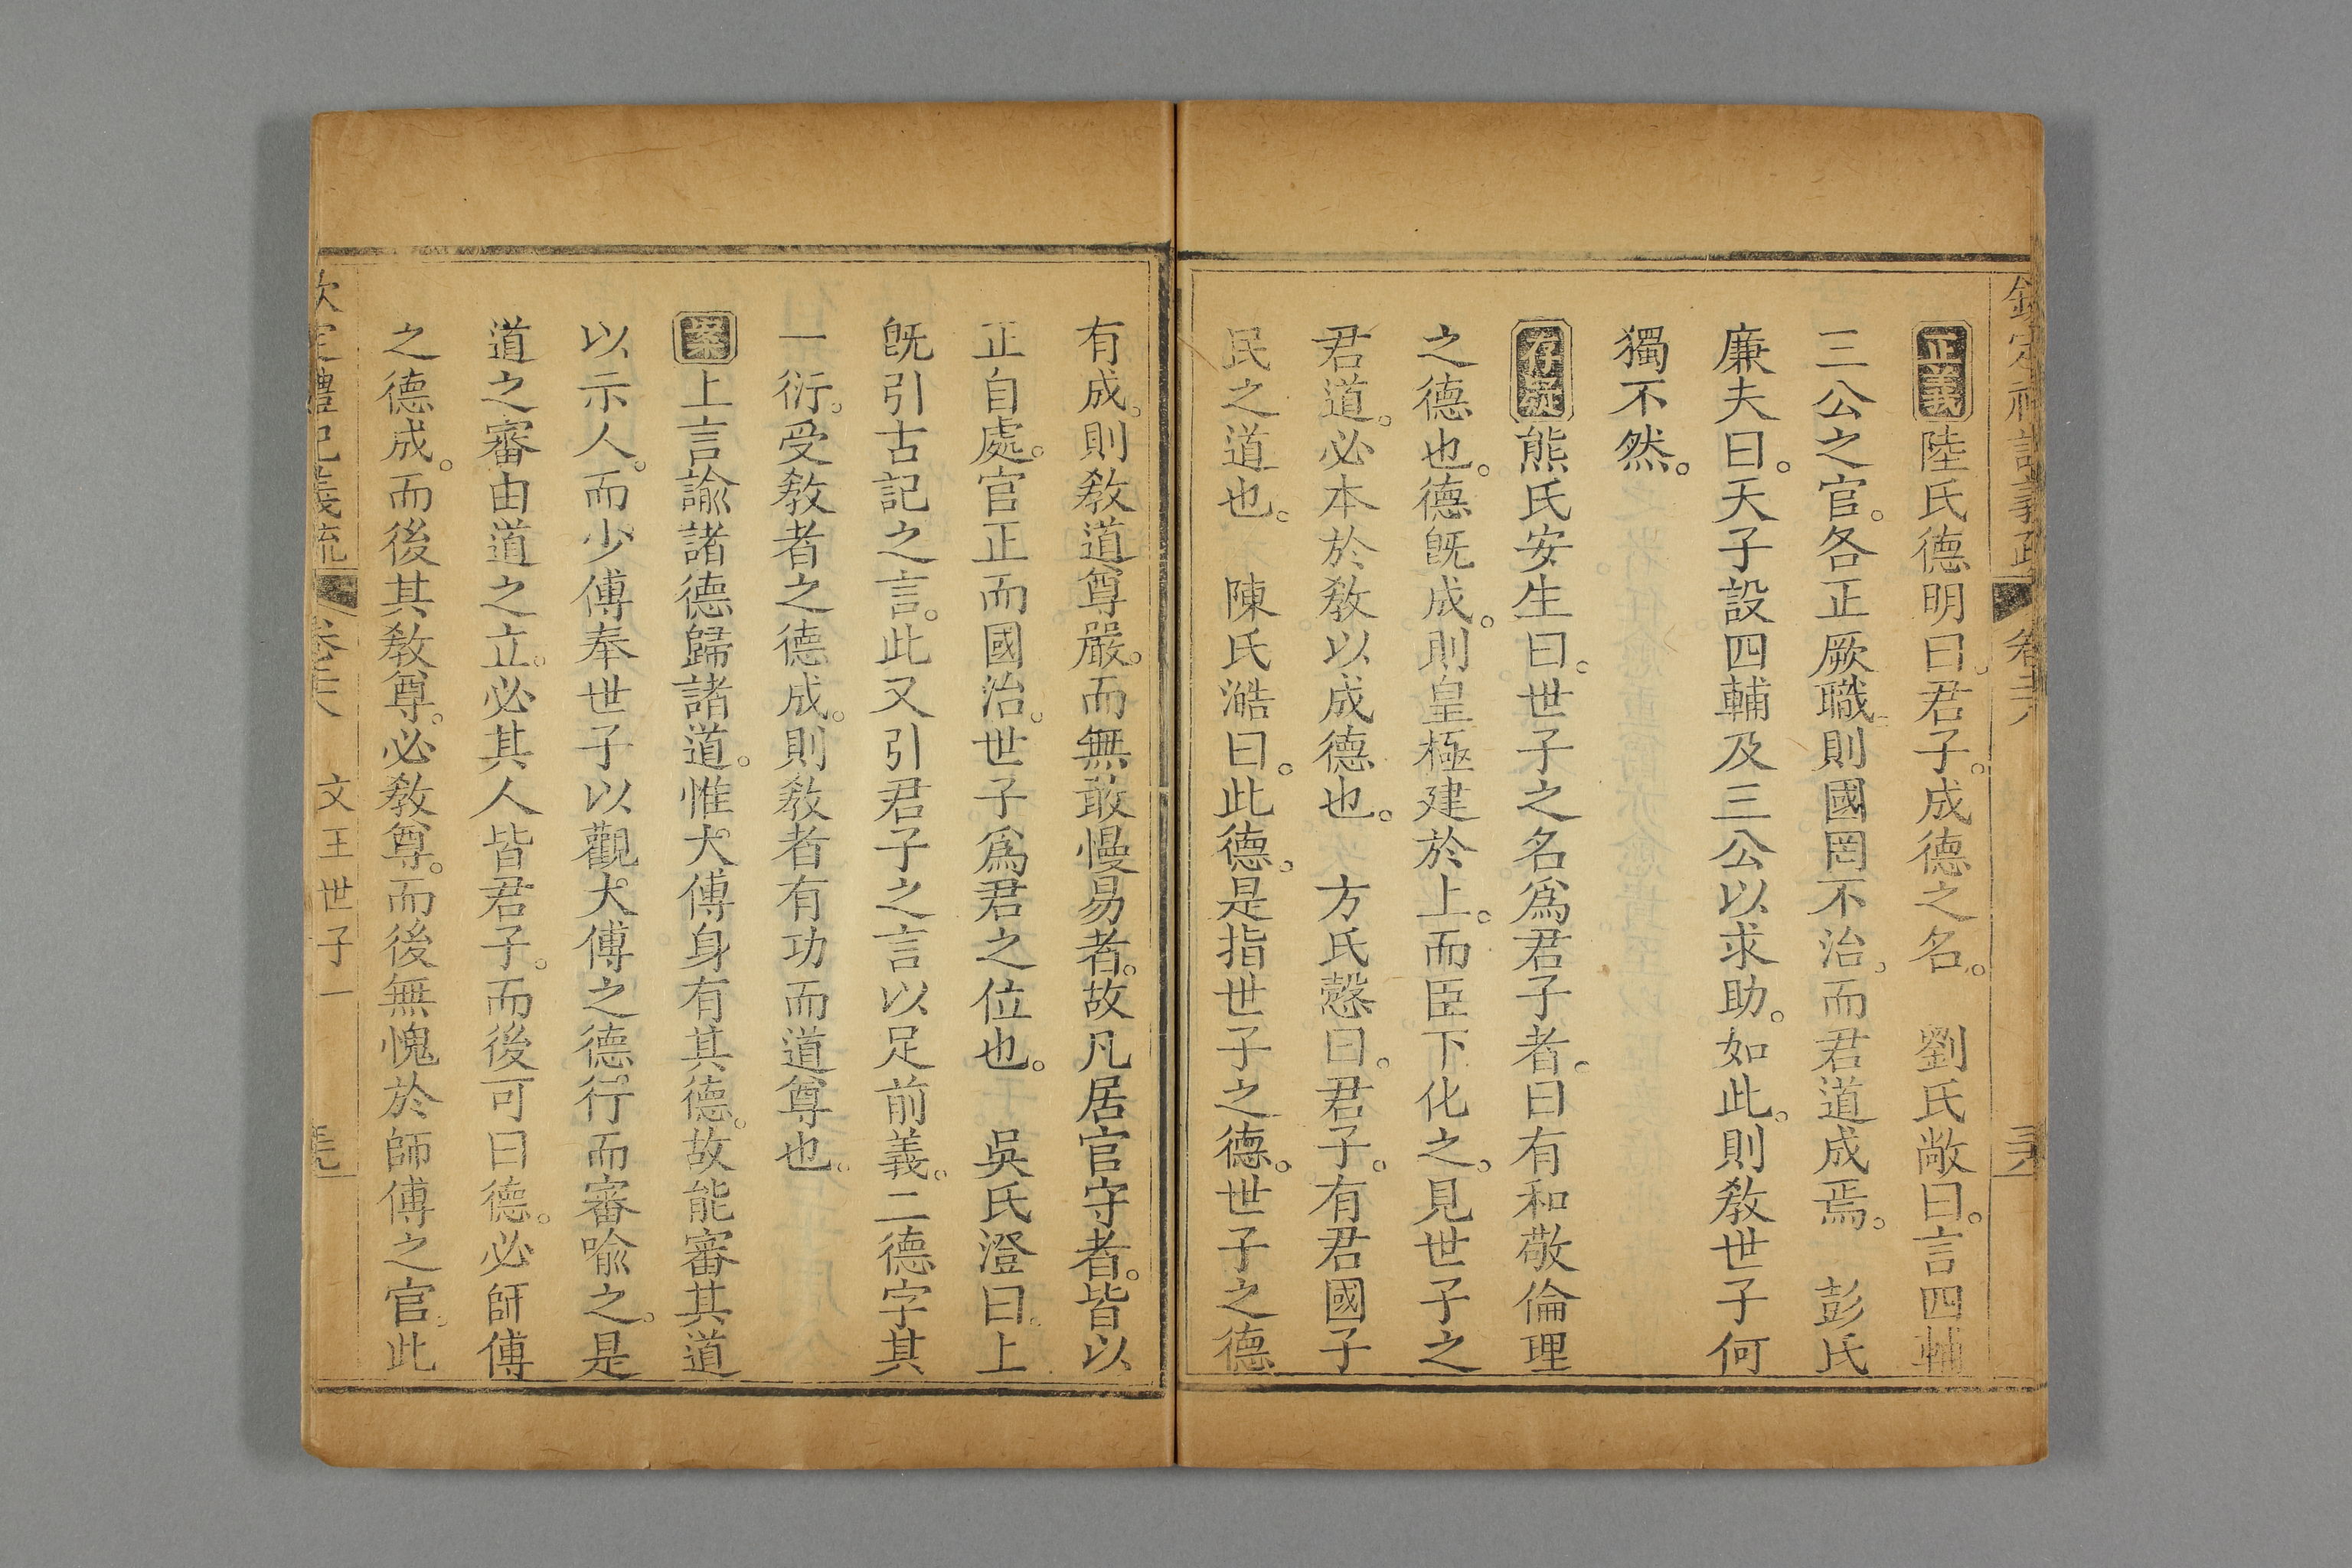 欽定禮記義疏 卷二十八 三十八
正義陸氏德明曰。君子。成德之名。 劉氏敞曰。言四輔
三公之官。各正厥職。則國罔不治。而君道成焉。 彭氏
廉夫曰。天子設四輔及三公以求助。如此。則敎世子何
獨不然。
存疑熊氏安生曰。世子之名爲君子者。曰有和敬倫理
之德也。德旣成。則皇極建於上。而臣下化之。見世子之
君道。必本於敎以成德也。 方氏慤曰。君子。有君國子
民之道也。 陳氏澔曰。此德。是指世子之德。世子之德
有成。則敎道尊嚴。而無敢慢易者。故凡居官守者。皆以
正自處。官正而國治。世子爲君之位也。 吳氏澄曰。上
旣引古記之言。此又引君子之言以足前義。二德字其
一衍。受敎者之德成。則敎者有功而道尊也。
案上言諭諸德歸諸道。惟大傅身有其德。故能審其道
以示人。而少傅奉世子以觀大傅之德行而審喻之。是
道之審由道之立。必其人皆君子。而後可曰德。必師傅
之德成。而後其敎尊。必敎尊。而後無愧於師傅之官。此
欽定禮記義疏 卷二十八 文王世子一 三十九